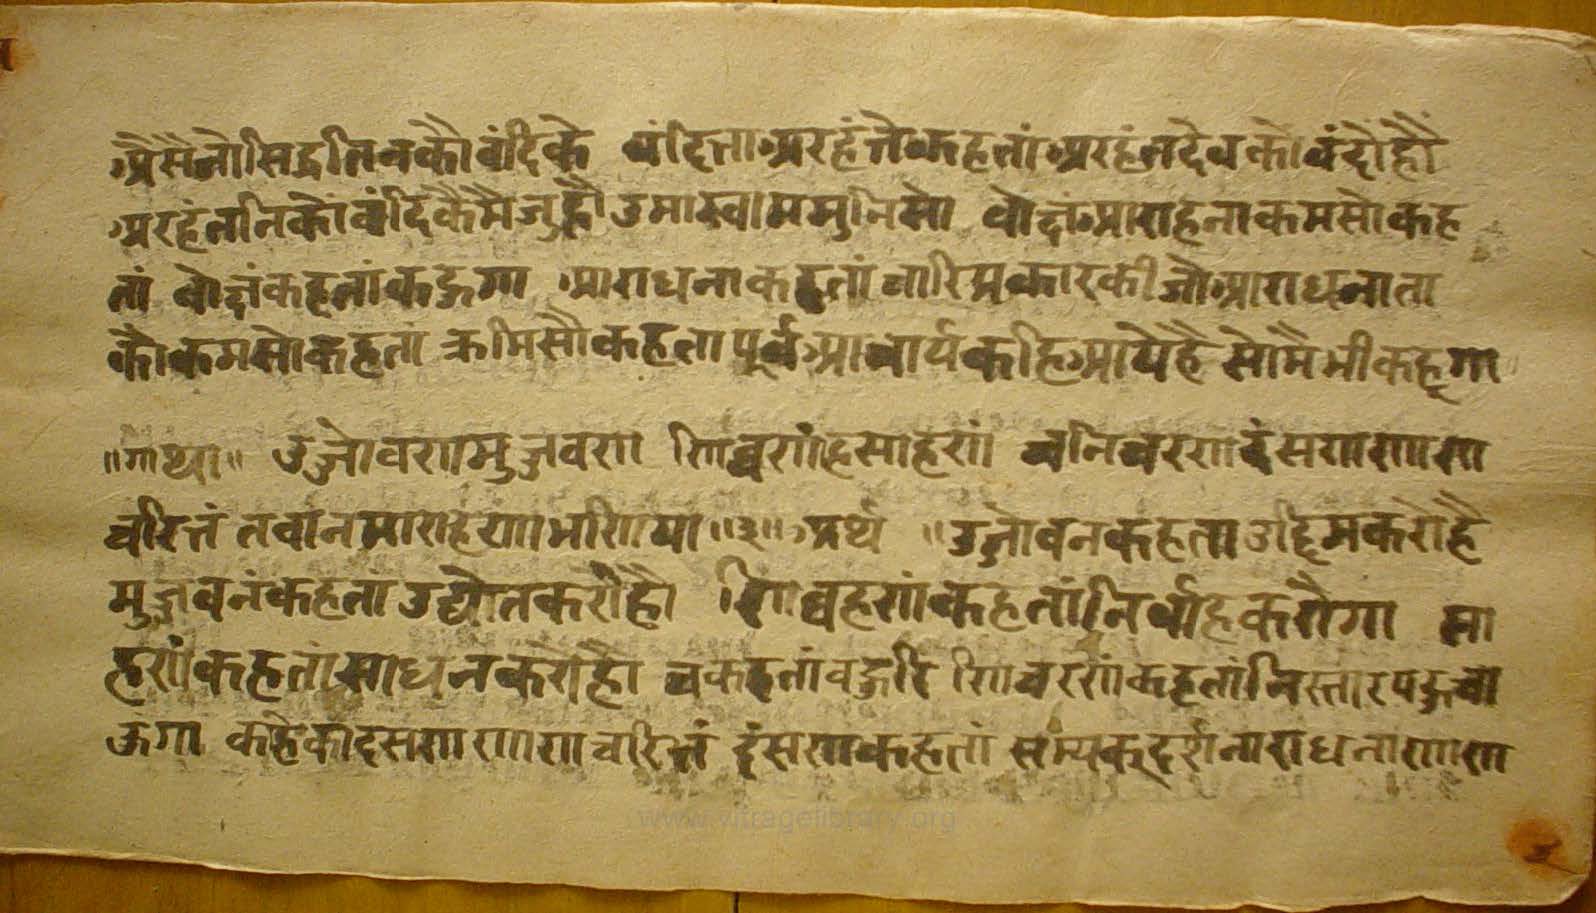 अैसैजोसिद्धतिनकौवांदिके वांदित्ताअरहंतेकहतांअरहंतदेवकौवंदौंहौं
अरहंतनिकौंवांदिकैमैजुहौंउमास्वाममुनिसो वोछंआराहनाकमसोकह
तां वोछंकहतांकहूगा आराधनाकहतां चारिप्रकारकीजोआराधनाता
कौकमसोकहता क्रमिसौकहतापूर्वआचार्यकहिआयेहै सोमैभीकहूगा
॥गाथा॥ उज्जोवणमुज्जवण णिव्वणंहसाहणं चनिचरणदंसणणाण
चरित्तं तवानमाराहणाभणिया॥३॥अर्थ ॥उज्जोवनकहताउदिमकरौहै
मुज्जवनंकहतांउद्योतकरौंहौ णिव्वहणंकहतांनिर्वाहकरौगा सा
हणंकहतांसाधनकरौहौ चकहतांवहूरि णिचरणंकहतांनिस्तारपहूचा
ऊगा कहैकीदसणणाणचरित्तं दंसणकहतां सम्यकदर्शनाराधनाणाण
www.vitragelibrary.org